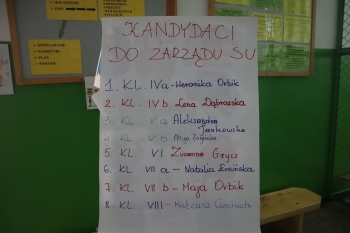 KANDYDACI
DO ZARZĄDU SU
1. KL. IVa - Weronika Orbik
2. KL. IVb Lena Dąbrowska
3 KL. Va Aleksandra
Jankowska
4 KL. Vb Alicja
5. KL. VI Zuzanna Grycz
6. KL. VII a - Natalia
7. KL. VII b - Maja Orbik
8 KL. VIII - Mateusz